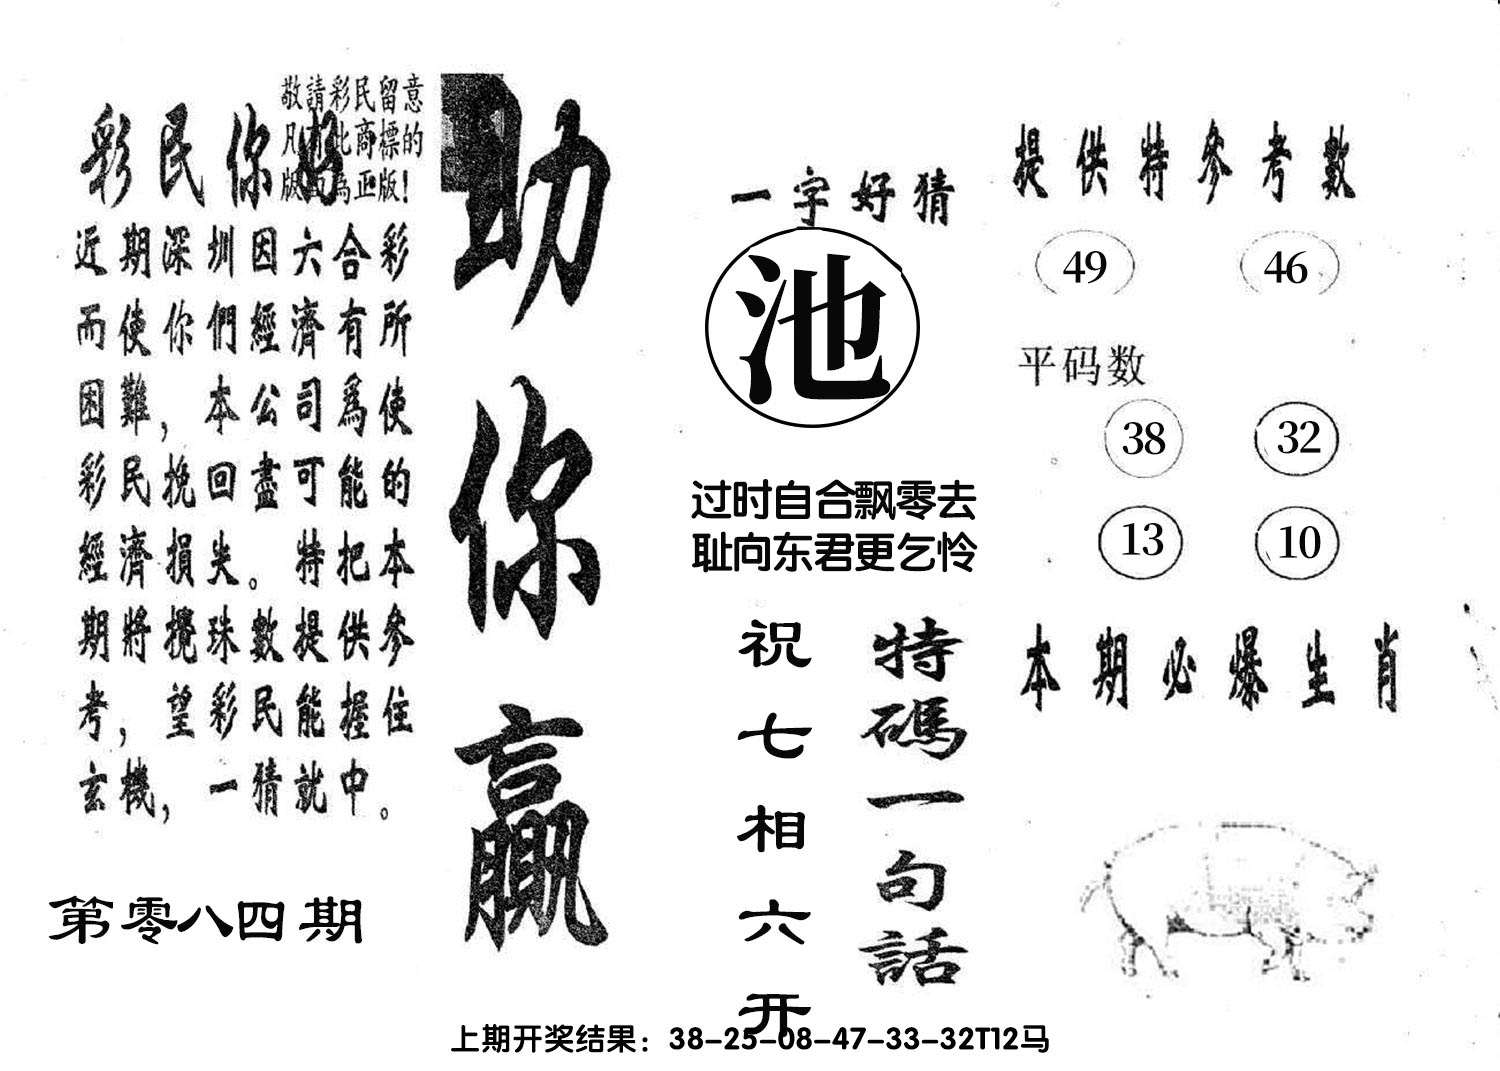 敬請彩民留意
凡有此商標的
版面為正版！
彩民你好
近期深圳因六合彩
而使你們經濟有所
困難，本公司爲使
彩民挽回盡可能的
經濟損失。特把本
期將攪珠數提供參
考，望彩民能握住
玄機，一猜就中。
第零八四期
助你贏
一字好猜
池
过时自合飘零去
耻向东君更乞怜
特碼一句話
祝七相六开
提供特參考數
49 46
平码数
38 32
13 10
本期必爆生肖
上期开奖结果：38-25-08-47-33-32T12马